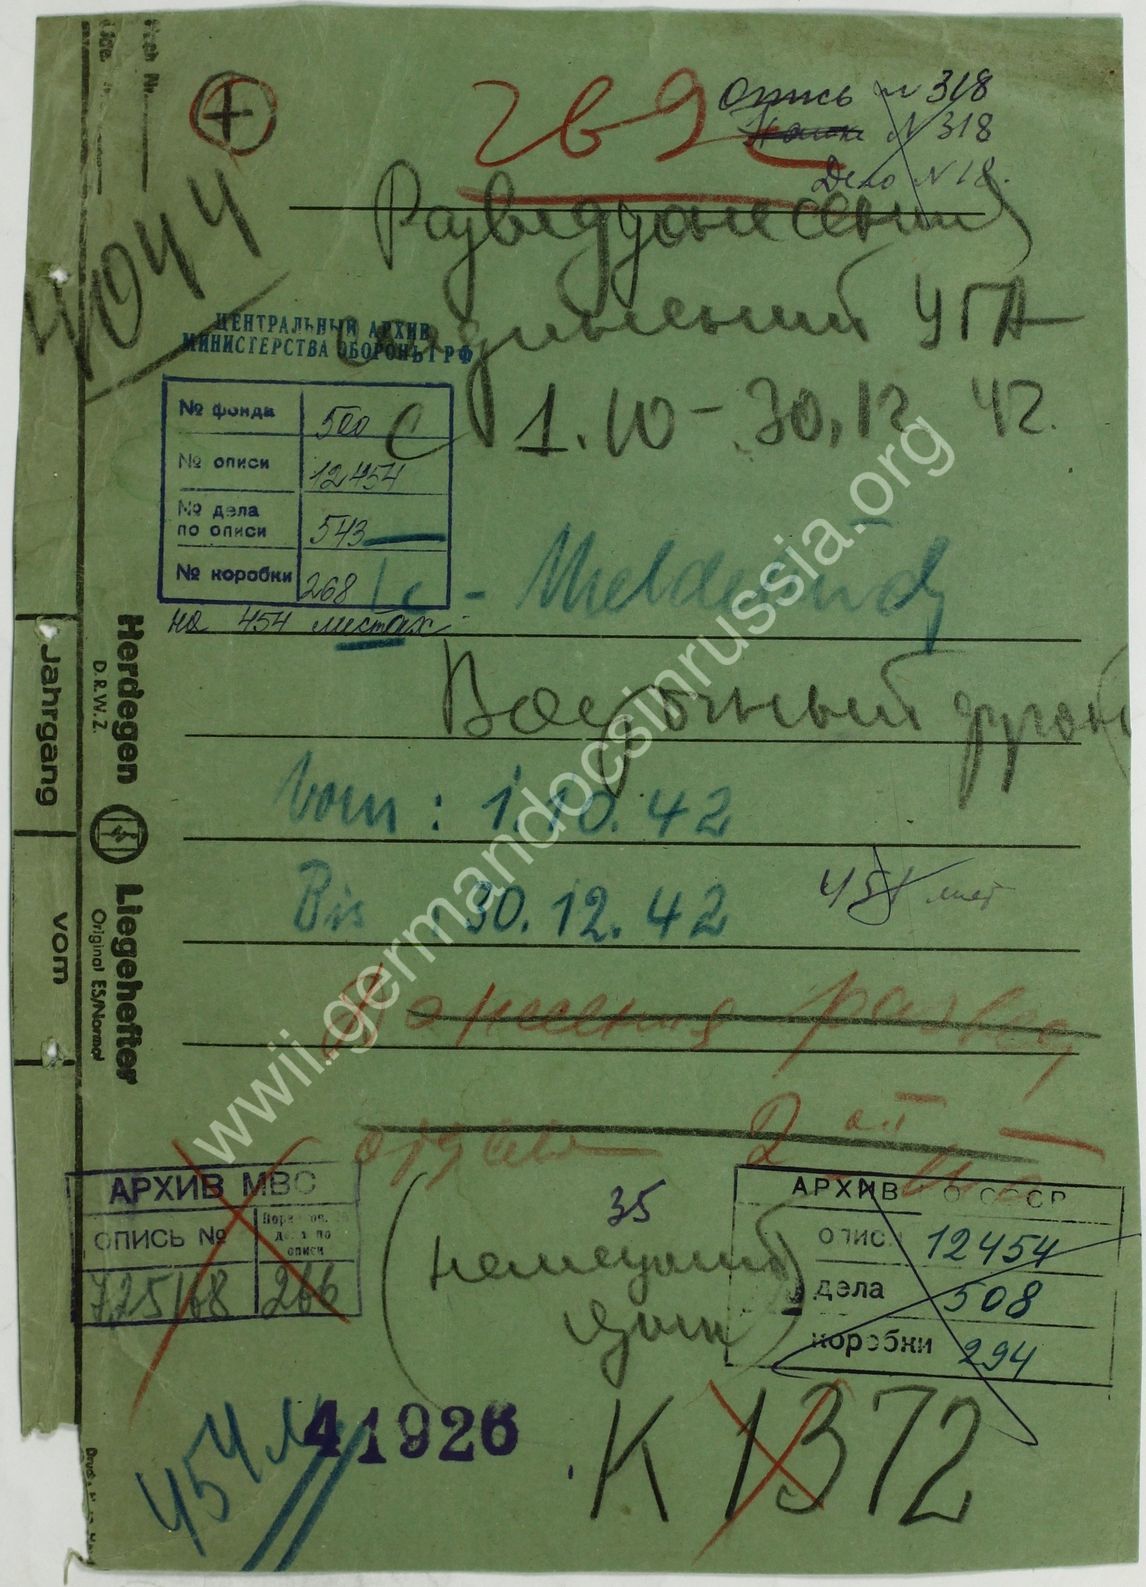 Опись № 318
№ 318
Дело № 18.
4044
Разведдонесения
соединений УГА
ЦЕНТРАЛЬНЫЙ АРХИВ
МИНИСТЕРСТВА ОБОРОНЫ РФ
с 1.10 - 30.12 42.
№ фонда 500
№ описи 12454
№ дела по описи 543
№ коробки 268
на 454 листах
Ic - Meldebuch
Восточный фронт
Vom : 1.10.42
Bis 30.12.42
454 лист
Донесения развед
отдела 2 ой
АРХИВ МВС
ОПИСЬ №
дела по описи
725168 266
35
(немецкий
язык)
АРХИВ МО СССР
опись 12454
дела 508
коробки 294
454 л.
41926
К 1372
Herdegen Liegehefter
D.R.W.Z.
Original ES/Normal
Jahrgang
vom
wwii.germandocsinrussia.org